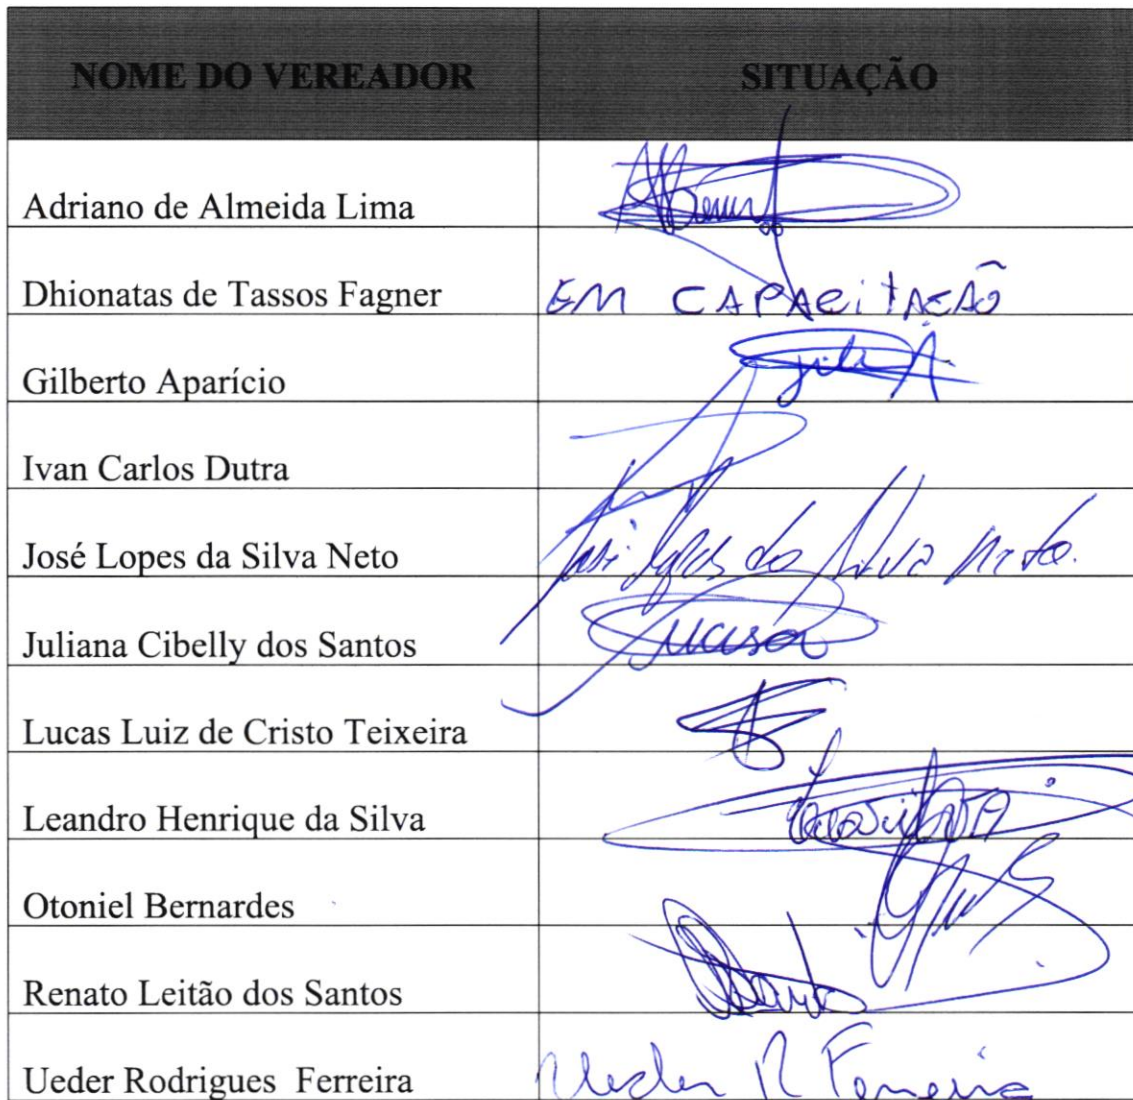 NOME DO VEREADOR SITUAÇÃO
Adriano de Almeida Lima
Dhionatas de Tassos Fagner EM CAPACITAÇÃO
Gilberto Aparício
Ivan Carlos Dutra
José Lopes da Silva Neto José Lopes da Silva Neto.
Juliana Cibelly dos Santos
Lucas Luiz de Cristo Teixeira
Leandro Henrique da Silva
Otoniel Bernardes
Renato Leitão dos Santos
Ueder Rodrigues Ferreira Ueder R Ferreira